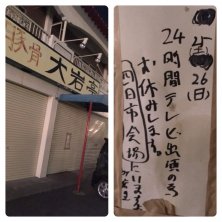 豚骨 大岩亭
25(土)
26(日)
24時間テレビ出演の為
お休みします。
四日市会場にいます